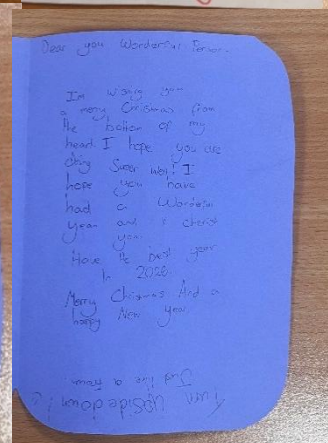 Dear you Wonderful Person.
Im wishing you
a merry Christmas from
the bottom of my
heart I hope you are
doing Super well! I
hope you have
had a Wonderful
year and I cherish
you.
Have the best year
In 2026.
Merry Christmas And a
happy New year
Just like a
Turn upside down!